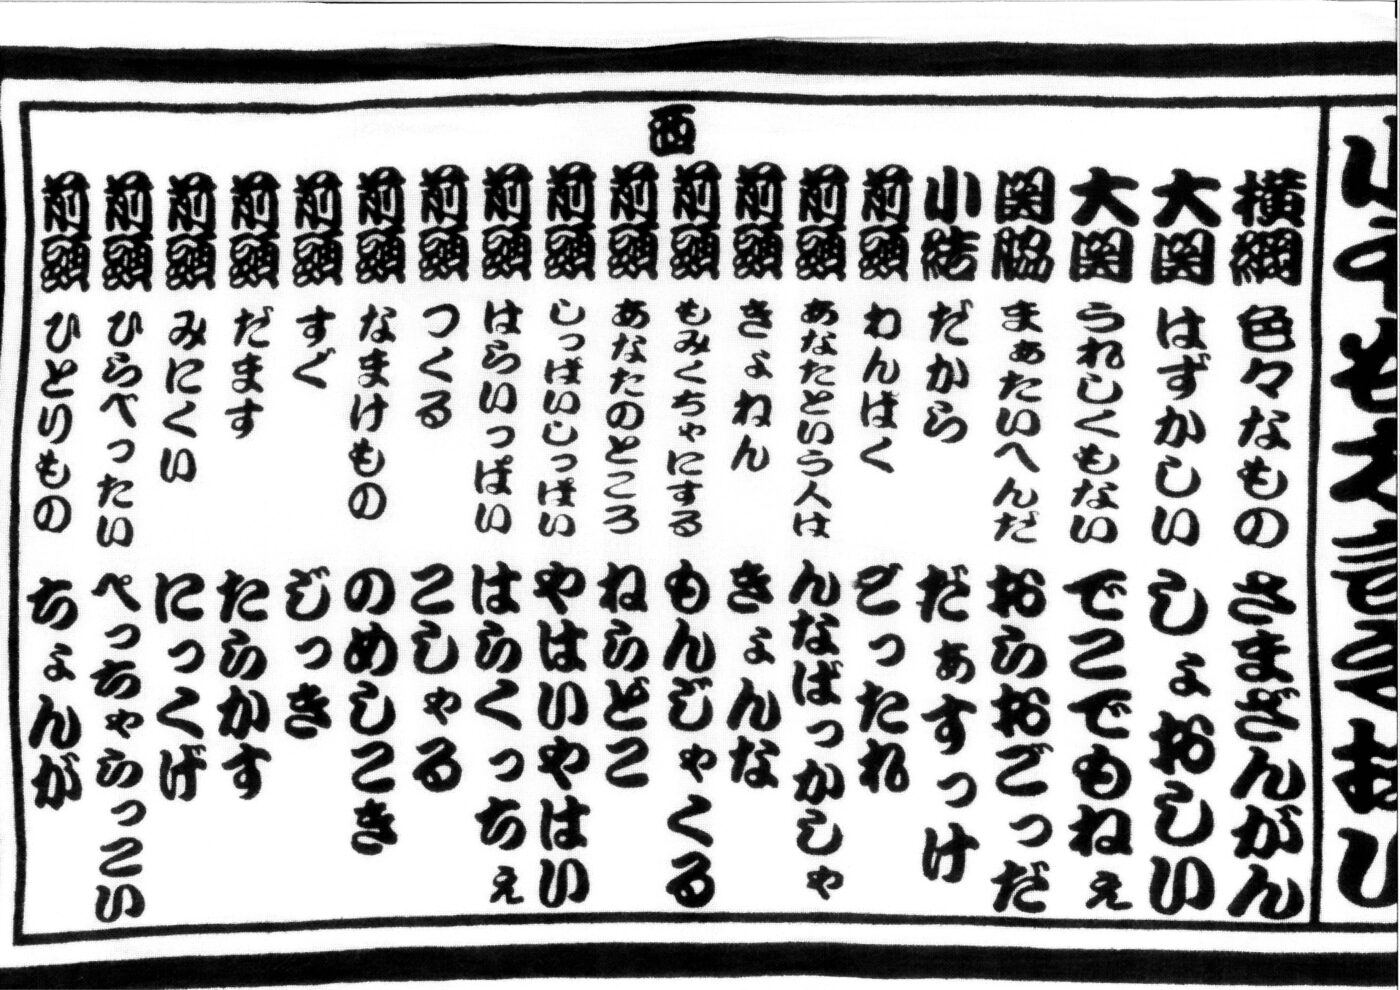 西
横綱 色々なもの さまざんがん
大関 はずかしい しょおしい
大関 うれしくもない でこでもねぇ
関脇 まぁたいへんだ おらおごっだ
小結 だから だぁすっけ
前頭 わんぱく ごったれ
前頭 あなたという人は んなばっかしゃ
前頭 きょねん きょんな
前頭 もみくちゃにする もんじゃくる
前頭 あなたのところ ねらどこ
前頭 しっぱいしっぱい やはいやはい
前頭 はらいっぱい はらくっちぇ
前頭 つくる こしゃる
前頭 なまけもの のめしこき
前頭 すぐ じっき
前頭 だます たらかす
前頭 みにくい にっくげ
前頭 ひらべったい ぺっちゃらっこい
前頭 ひとりもの ちょんが